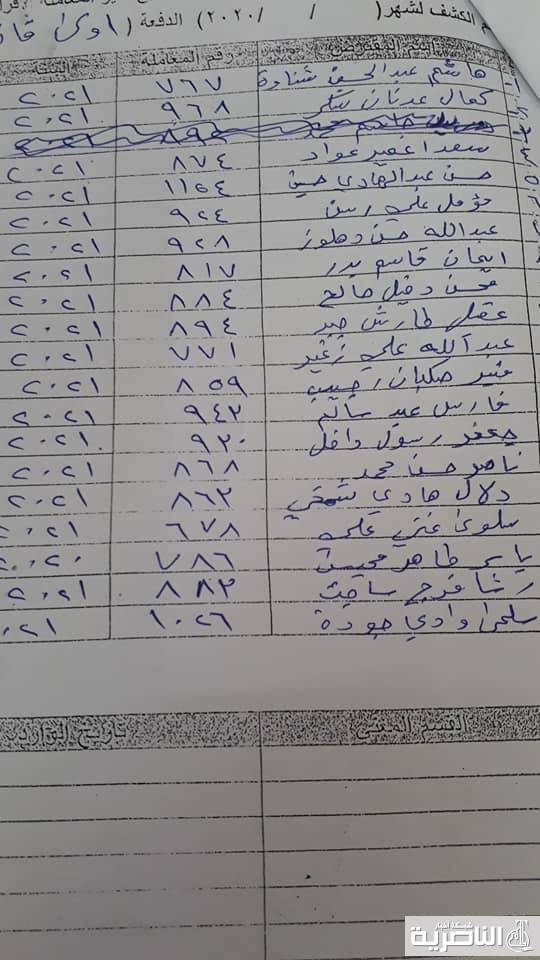 م الكشف لشهر ( / / ٢٠٢٠) الدفعة (اولى
اسم المقترض رقم المعاملة السنة
هاشم عبد الحسن شنادة ٧٦٧ ٢٠٢١
كمال عدنان شكر ٩٦٨ ٢٠٢١
سعد اخضير عواد ٨٧٤ ٢٠٢١
حسن عبد الهادي حسين ١١٥٤ ٢٠٢١
مؤمل علي رسن ٩٢٤ ٢٠٢١
عبد الله حسن دهلوز ٩٢٨ ٢٠٢١
ايمان قاسم بدر ٨١٧ ٢٠٢١
محسن دخيل صالح ٨٨٤ ٢٠٢١
عقلي طارش جبر ٨٩٤ ٢٠٢١
عبد الله علي زغير ٧٧١ ٢٠٢١
منير صكبان حسيب ٨٥٩ ٢٠٢١
فارس عبد سالم ٩٤٢ ٢٠٢١
جعفر رسول داخل ٩٢٠ ٢٠٢١
ناصر حسن محمد ٨٦٨ ٢٠٢١
دلال هادي ٨٦٢ ٢٠٢١
سلوى غني علي ٦٧٨ ٢٠٢١
ياسر طاهر محيسن ٧٨٦ ٢٠٢٠
رشا فرج ساجت ٨٨٢ ٢٠٢١
سلمى وادي جودة ١٠٢٦ ٢٠٢١
القسم المعني تاريخ الوارد
شبكة أخبار
الناصرية